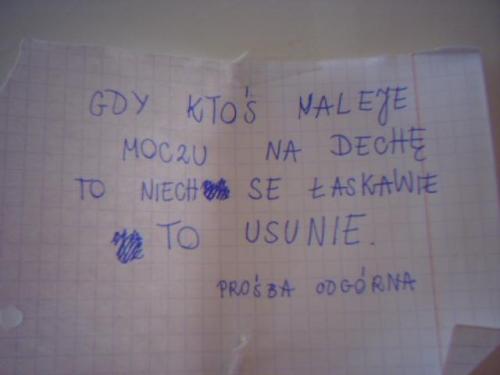 GDY KTOŚ NALEJE
MOCZU NA DECHĘ
TO NIECH SE ŁASKAWIE
TO USUNIE.
PROŚBA ODGÓRNA